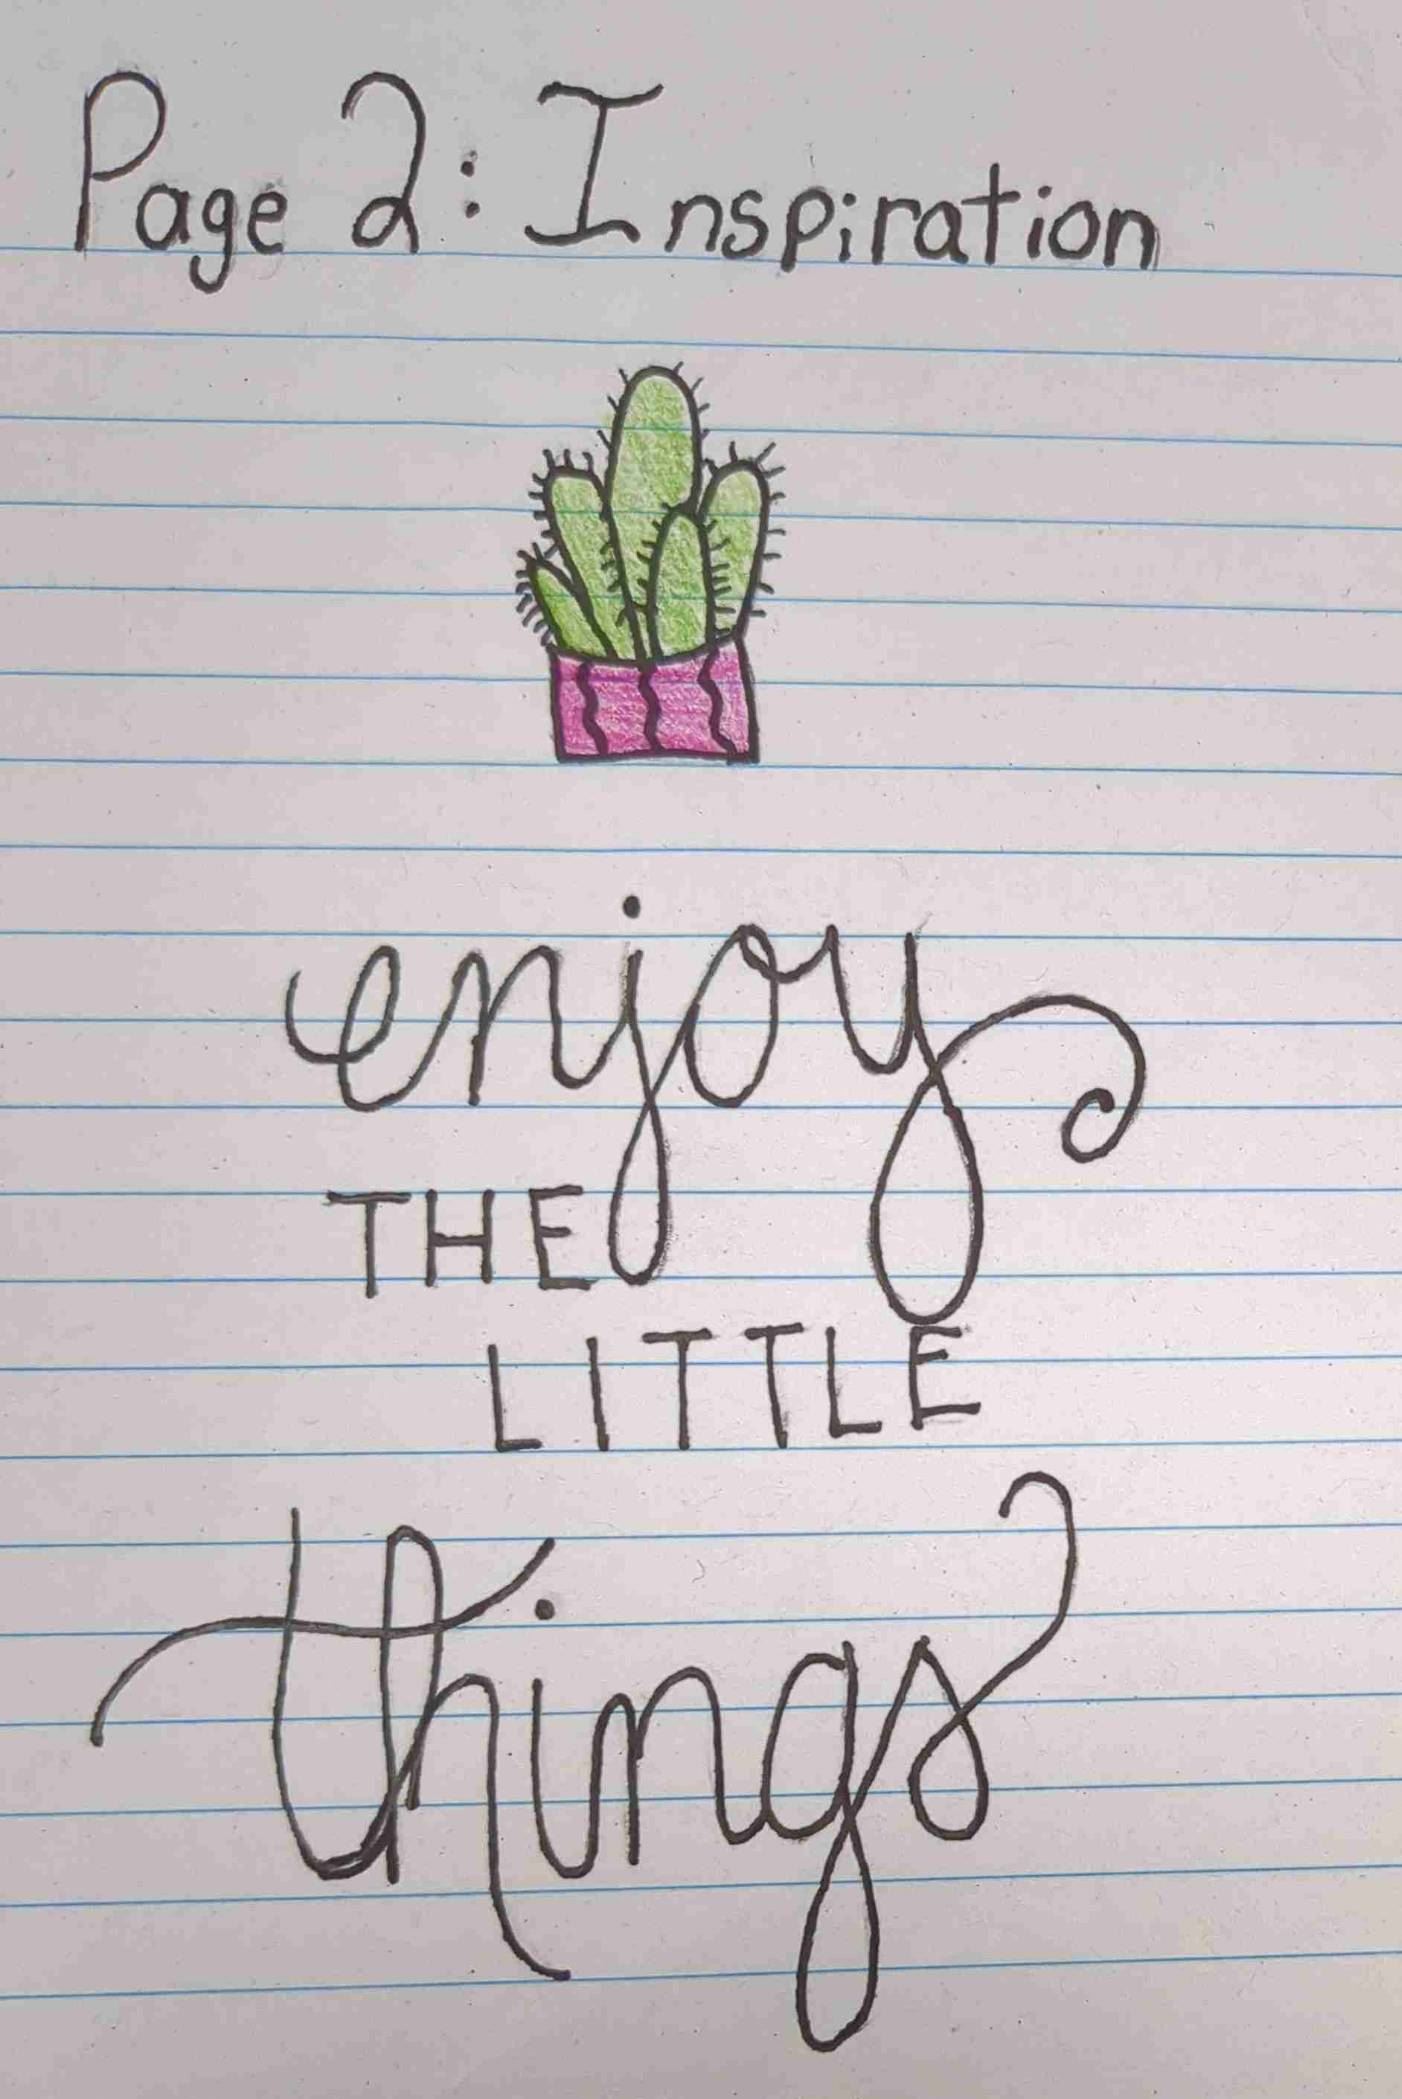 Page 2: Inspiration
enjoy
THE
LITTLE
things